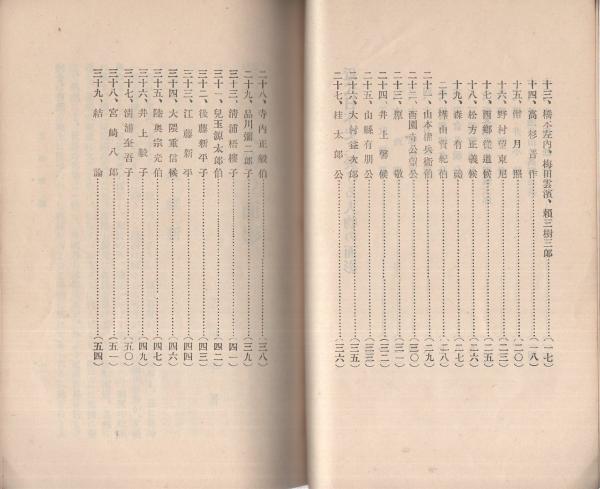 十三、橋本左內、梅田雲濱、賴三樹三郎……(一七)
十四、高杉晋作……(一八)
十五、僧月照……(二〇)
十六、野村望東尼……(二三)
十七、西鄕從道候……(二五)
十八、松方正義候……(二六)
十九、森有禮……(二七)
二十、樺山資紀伯……(二八)
二十一、山本權兵衞伯……(二九)
二十二、西園寺公望公……(三〇)
二十三、原敬……(三一)
二十四、井上馨候……(三二)
二十五、山縣有朋公……(三三)
二十六、大村益次郎……(三五)
二十七、桂太郎公……(三六)
二十八、寺内正毅伯……(三八)
二十九、品川彌二郎子……(三九)
三十三、淸浦梧樓子……(四一)
三十一、兒玉源太郎伯……(四二)
三十二、後藤新平子……(四三)
三十三、江藤新平……(四四)
三十四、大隈重信候……(四六)
三十五、陸奥宗光伯……(四七)
三十六、井上毅子……(四九)
三十七、淸浦奎吾子……(五〇)
三十八、宮崎八郎……(五一)
三十九、結論……(五四)